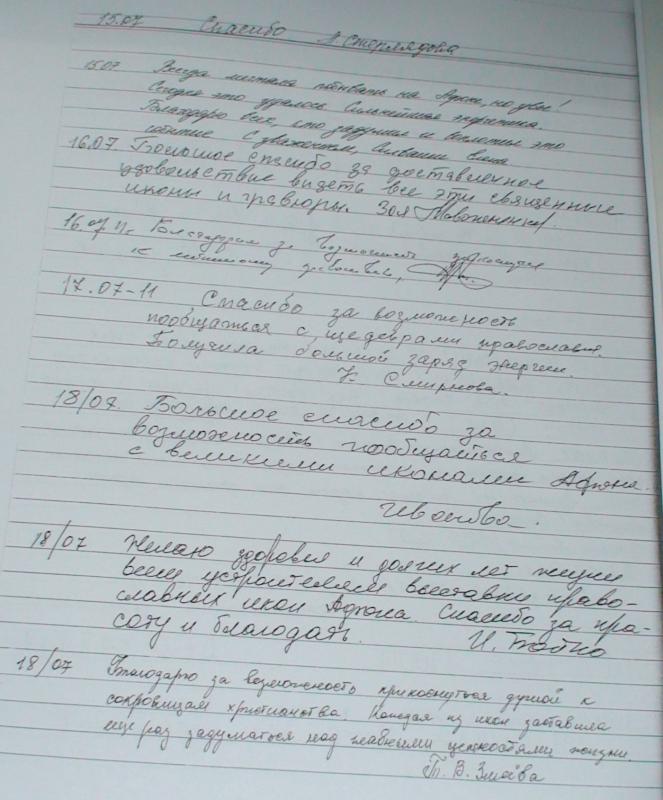 15.07 Спасибо А Стерлядова
15.07 Всегда мечтала побывать на Афоне, но увы!
Сегодня это удалось. Сильнейшая энергетика.
Благодарю всех, кто задумал и воплотил это
событие С уважением,
16.07 Большое спасибо за доставленное
удовольствие видеть все эти священные
иконы и гравюры. Зоя
16.07 Благодарим за возможность
к
17.07-11 Спасибо за возможность
пообщаться с шедеврами православия.
Получила большой заряд энергии.
Смирнова.
18/07. Большое спасибо за
возможность пообщаться
с великими иконами Афона.
18/07 Желаю здоровья и долгих лет жизни
всем устроителям выставки право-
славных икон Афона. Спасибо за кра-
соту и благодать. И. Бойко
18/07 Благодарю за возможность прикоснуться душой к
сокровищам христианства. Каждая из икон заставила
еще раз задуматься над главными ценностями жизни.
Т. В. Змеёва